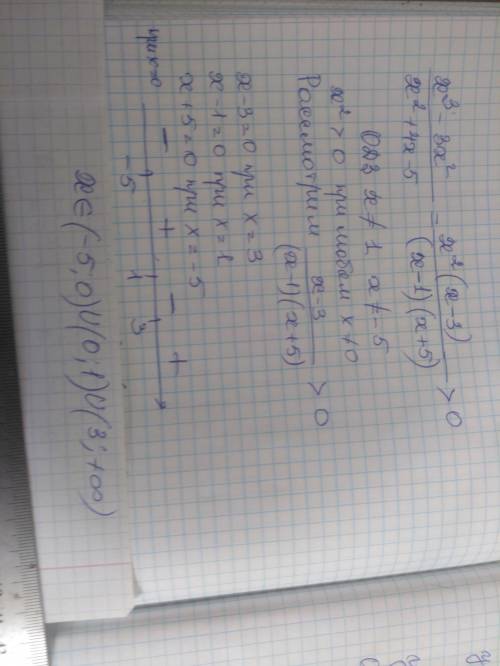 x³ - 3x² / x² + 4x - 5 = x²(x-3) / (x-1)(x+5) > 0
ОДЗ x ≠ 1 x ≠ -5
x² > 0 при любом x ≠ 0
Рассмотрим x-3 / (x-1)(x+5) > 0
x-3=0 при x=3
x-1=0 при x=1
x+5=0 при x=-5
- -5 + 1 - 3 +
x ∈ (-5; 0) U (0; 1) U (3; +∞)